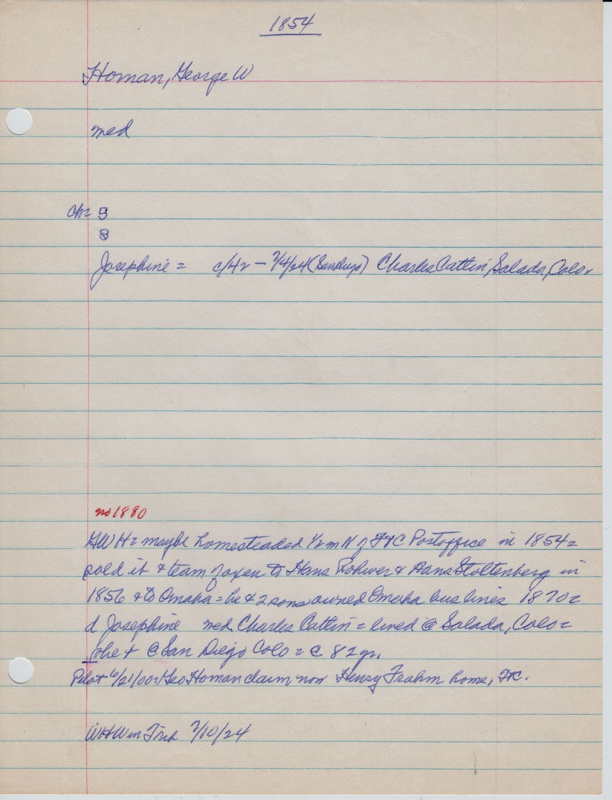 1854
Homan, George W
med
ch = 9
8
Josephine = c/42 - 7/4/24 (San Diego) Charles Catlin, Salada, Colo.
no 1880
GWH = maybe homesteaded ½ m N of Ft C Postoffice in 1854 =
sold it & team of oxen to Hans Rohwer & Hans Stoltenberg in
1856 & to Omaha = he & 2 sons owned Omaha bus lines 1870 =
d Josephine med Charles Catlin = lived @ Salada, Colo =
she + @ San Diego Colo = @ 82 yr.
Pilot 6/21/00: Geo Homan claim now Henry Frahm home, Ft C.
WHW in Trib 7/10/24